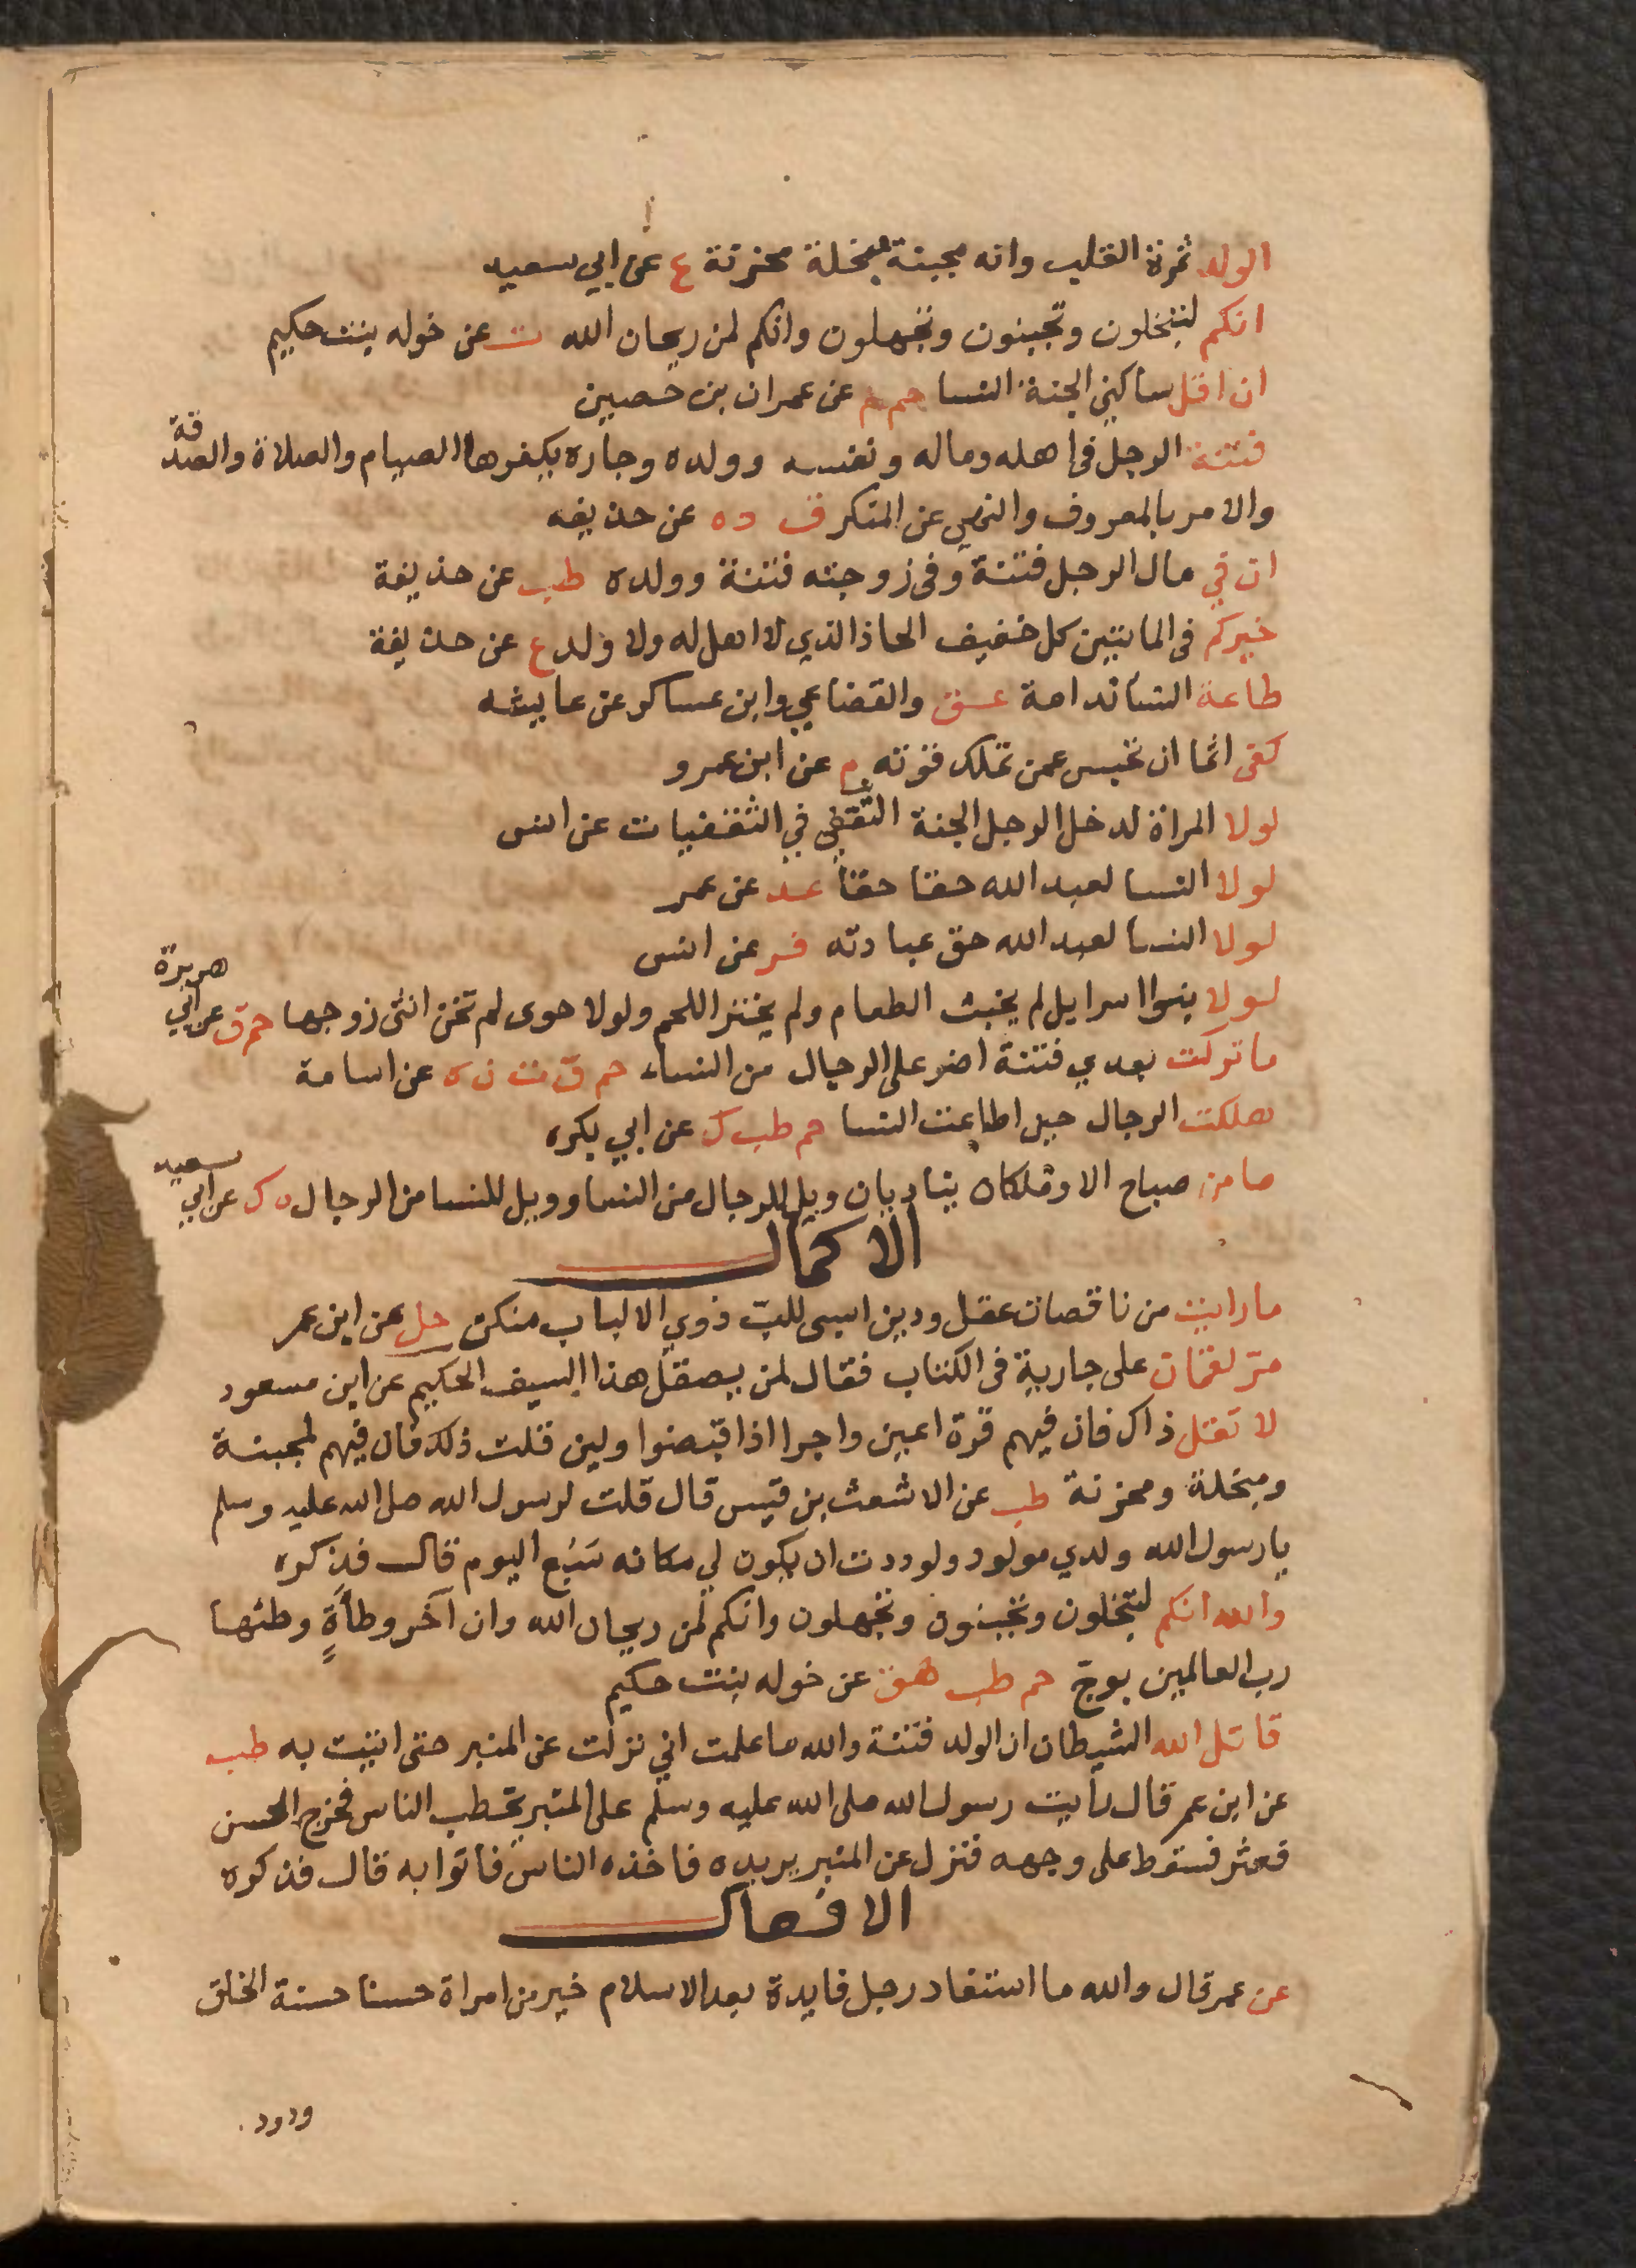 الولد ثمرة القلب وانه مجبنة مبخلة محزنة ع عن ابي سعيد
انكم لتبخلون وتجبنون وتجهلون وانكم لمن ريحان الله ت عن خوله بنت حكيم
ان اقل ساكني الجنة النسا حم م عن عمران بن حصين
فتنة الرجل في اهله وماله ونفسه وولده وجاره يكفرها الصيام والصلاة والصدقة
والامر بالمعروف والنهي عن المنكر ق ت ه عن حذيفه
ان في مال الرجل فتنة وفي زوجته فتنة وولده طب عن حذيفة
خيركم في المايتين كل خفيف الحاذ الذي لا اهل له ولا ولد ع عن حذيفة
طاعة النسا ندامة عق والقضاعي وابن عساكر عن عايشه
كفى اثما ان تحبس عمن تملك قوته م عن ابن عمرو
لولا المراة لدخل الرجل الجنة الثقفي في الثقفيات عن انس
لولا النسا لعبد الله حقا حقا عد عن عمر
لولا النسا لعبد الله حق عبادته فر عن انس
لولا بنوا اسرايل لم يخبث الطعام ولم يخنز اللحم ولولا حوى لم تخن انثى زوجها حم ق عن ابي هريرة
ما تركت بعدي فتنة اضر على الرجال من النساء حم ق ت ن ه عن اسامة
هلكت الرجال حين اطاعت النسا حم طب ك عن ابي بكره
ما من صباح الا وملكان يناديان ويل للرجال من النسا وويل للنسا من الرجال ه ك عن ابي سعيد
الاكمال
ما رايت من ناقصات عقل ودين اسبى للب ذوي الالباب منكن حل عن ابن عمر
مر لقمان على جارية في الكتاب فقال لمن يصقل هذا السيف الحكيم عن ابن مسعود
لا تقل ذاك فان فيهم قرة اعين واجرا اذا قبضوا ولين قلت ذلك فان فيهم لمجبنة
ومبخلة ومحزنة طب عن الاشعث بن قيس قال قلت لرسول الله صلى الله عليه وسلم
يا رسول الله ولدي مولود ولوددت ان يكون لي مكانه شبع اليوم قال فذكره
والله انكم لتبخلون وتجبنون وتجهلون وانكم لمن ريحان الله وان آخر وطأةٍ وطئها
رب العالمين بوج حم طب هق عن خوله بنت حكيم
قاتل الله الشيطان ان الولد فتنة والله ما علمت اني نزلت عن المنبر حتى اتيت به طب
عن ابن عمر قال رأيت رسول الله صلى الله عليه وسلم على المنبر يخطب الناس فخرج الحسن
فعثر فسقط على وجهه فنزل عن المنبر يريده فاخذه الناس فاتوا به قال فذكره
الافعال
عن عمر قال والله ما استفاد رجل فايدة بعد الاسلام خير من امراة حسنا حسنة الخلق
ودود